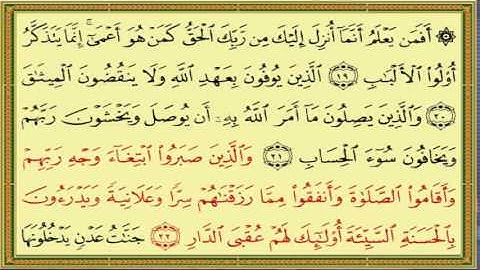 ۞ أَفَمَن يَعْلَمُ أَنَّمَآ أُنزِلَ إِلَيْكَ مِن رَّبِّكَ ٱلْحَقُّ كَمَنْ هُوَ أَعْمَىٰٓ ۚ إِنَّمَا يَتَذَكَّرُ
أُو۟لُوا۟ ٱلْأَلْبَٰبِ ١٩ ٱلَّذِينَ يُوفُونَ بِعَهْدِ ٱللَّهِ وَلَا يَنقُضُونَ ٱلْمِيثَٰقَ
٢٠ وَٱلَّذِينَ يَصِلُونَ مَآ أَمَرَ ٱللَّهُ بِهِۦٓ أَن يُوصَلَ وَيَخْشَوْنَ رَبَّهُمْ
وَيَخَافُونَ سُوٓءَ ٱلْحِسَابِ ٢١ وَٱلَّذِينَ صَبَرُوا۟ ٱبْتِغَآءَ وَجْهِ رَبِّهِمْ
وَأَقَامُوا۟ ٱلصَّلَوٰةَ وَأَنفَقُوا۟ مِمَّا رَزَقْنَٰهُمْ سِرًّا وَعَلَانِيَةً وَيَدْرَءُونَ
بِٱلْحَسَنَةِ ٱلسَّيِّئَةَ أُو۟لَٰٓئِكَ لَهُمْ عُقْبَى ٱلدَّارِ ٢٢ جَنَّٰتُ عَدْنٍ يَدْخُلُونَهَا